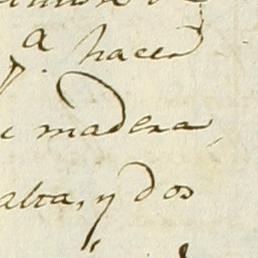 a hacer
madera,
alta, y dos